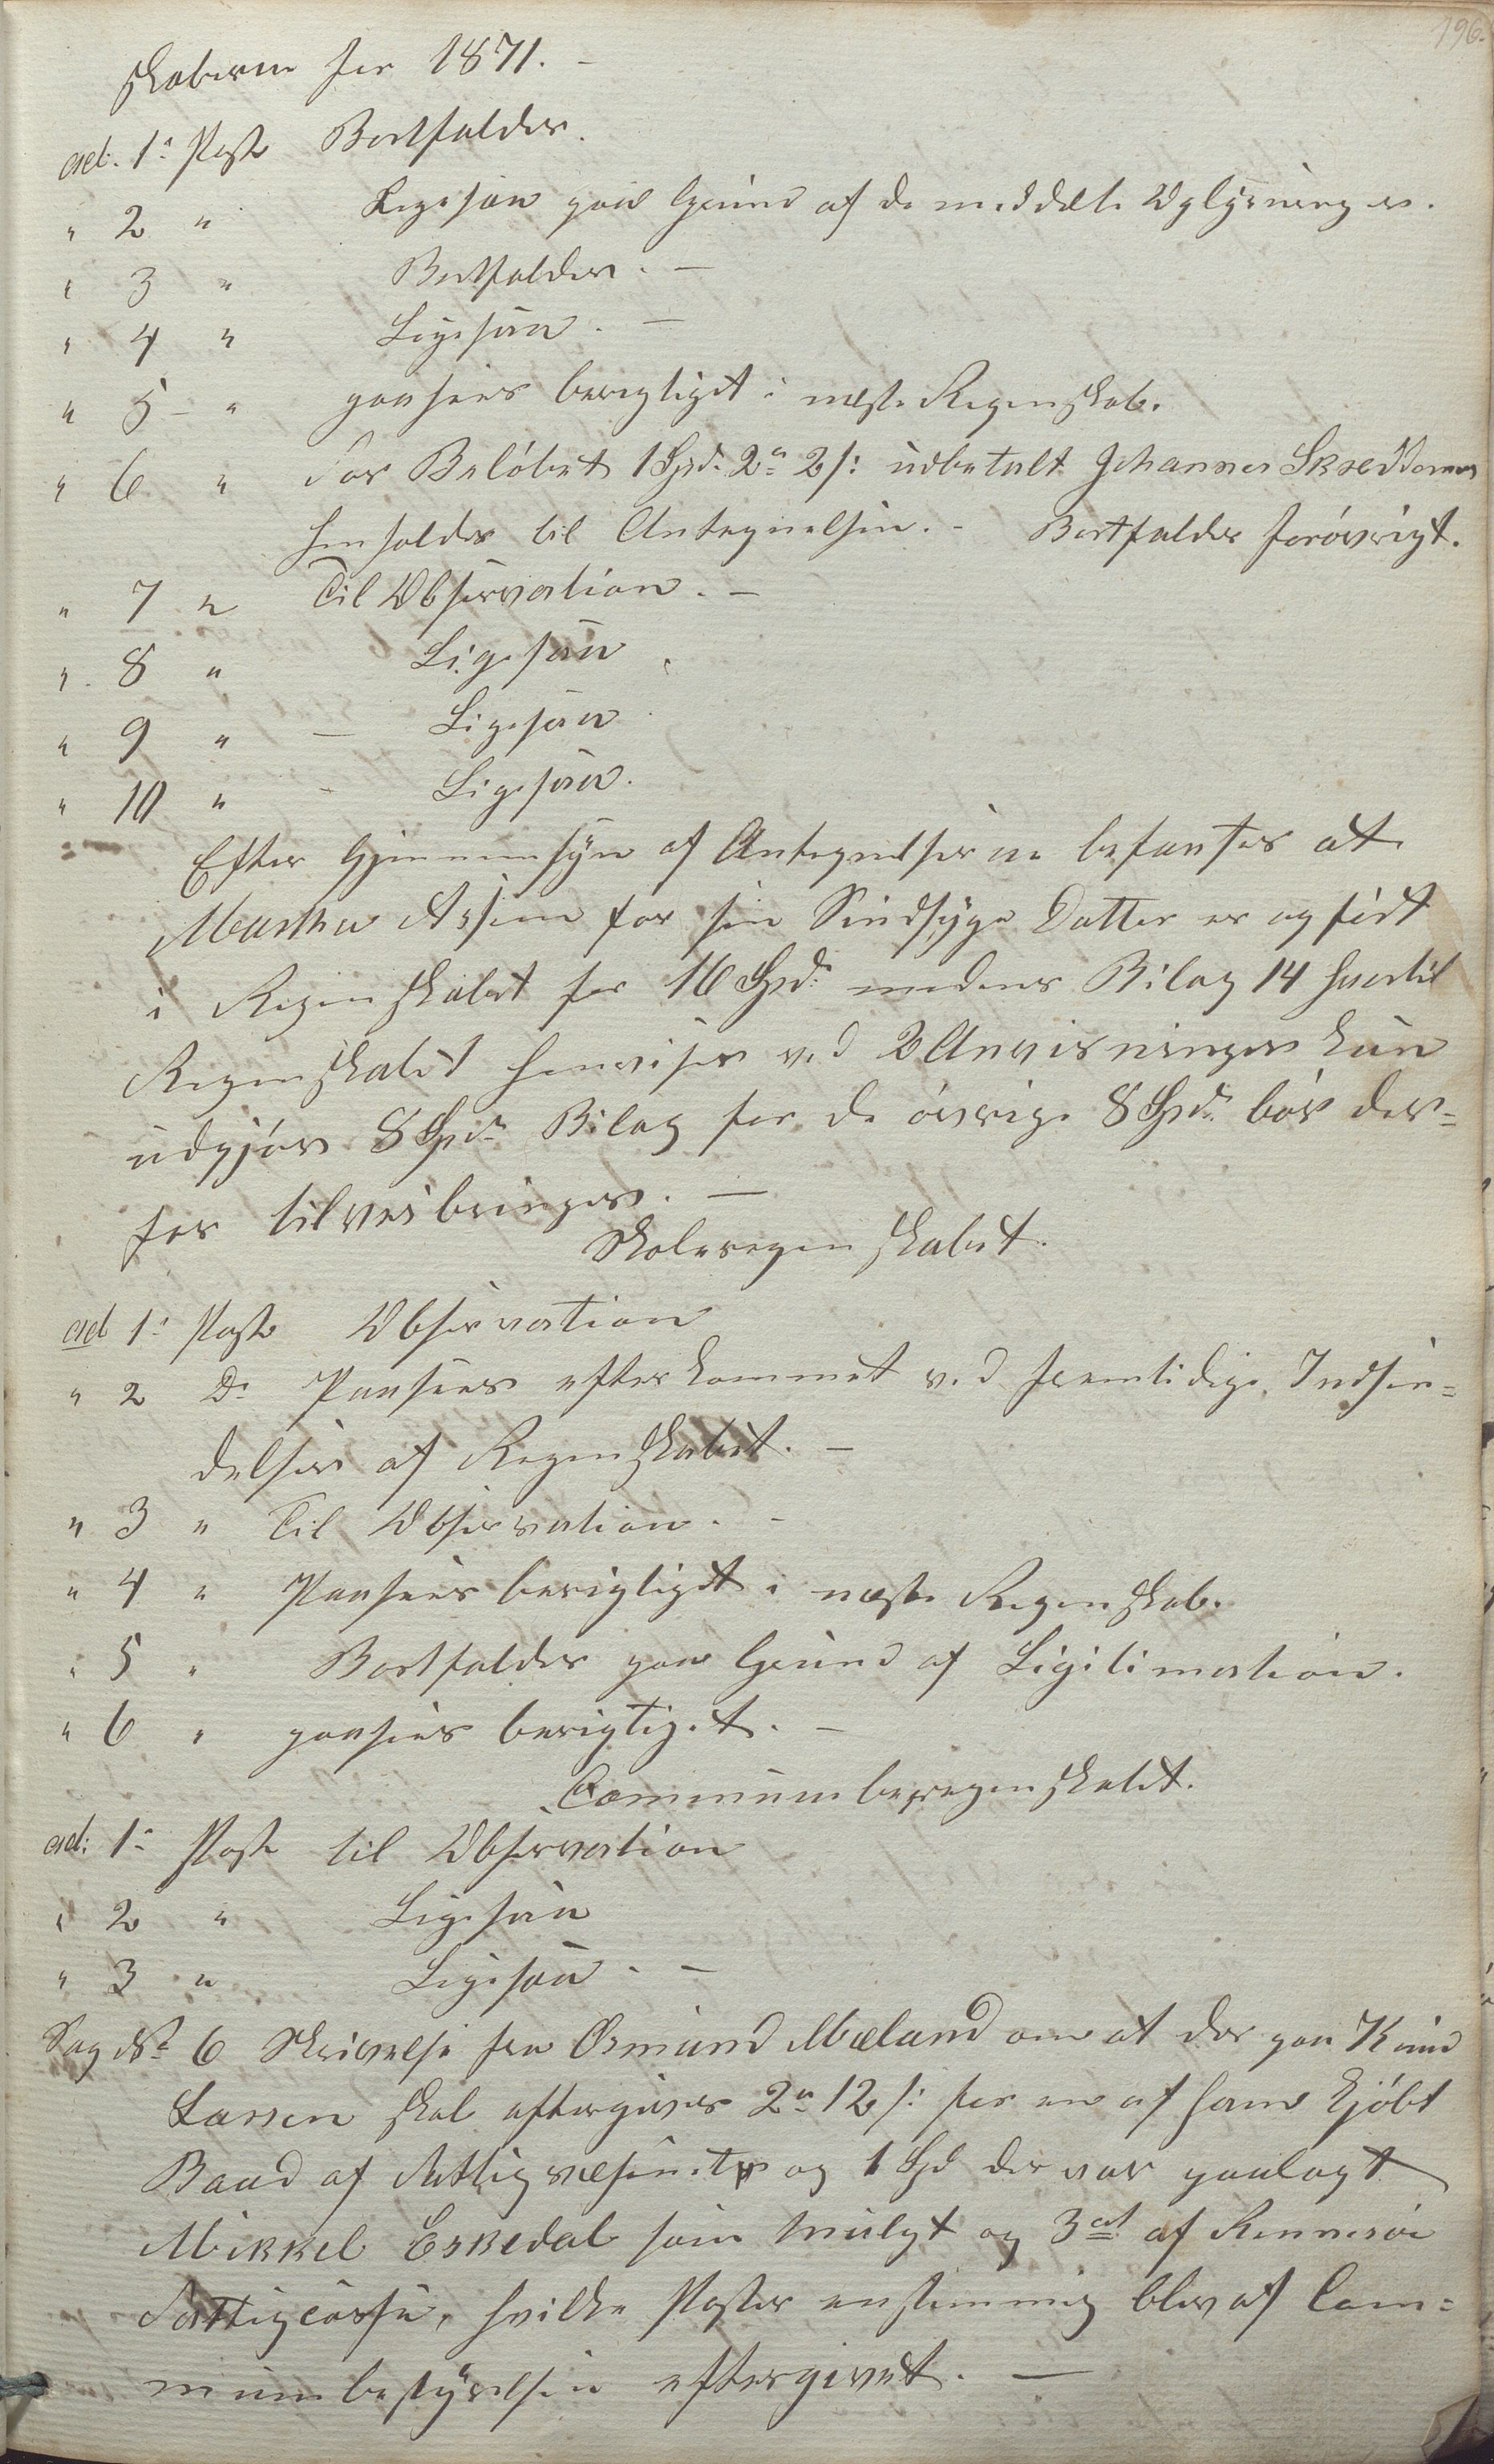 196.
skaberne for 1871. –
ad. 1ª Post Bortfalder.
" 2 " Ligesaa paa Grund af de meddelte Oplysninger.
" 3 " Bortfalder. –
" 4 " Ligesaa. –
" 5 – " paasees berigtiget i næste Regenskab.
" 6 " For Beløbet 1 Spd. 2 " 2 s: udbetalt Johannes Skreddernes
henholdes til Antegnelsen. – Bortfalder forøvrigt.
" 7 " Til Observation. –
" 8 " Ligesaa
" 9 " – Ligesaa
" 10 " – Ligesaa.
Efter Gjennemsyn af Antegnelserne befandtes at
Martha Asheim for sin Sindsyge Datter er opført
i Regenskabet for 16 Spd: medens Bilag 14 hvortil
Regenskabet henviser ved 2 Anvisninger kun
udgjør 8 Spd: Bilag for de øvrige 8 Spd: bør der=
for tilveiebringes. –
Skoleregenskabet.
ad 1ª Post Observation
" 2 Do Paasees efterkommet ved fremtidige Indsen=
delser af Regenskabet. –
" 3 " Til Observation. –
" 4 " Paasees berigtiget i næste Regenskab.
" 5 " Bortfalder paa Grund af Ligitimation.
" 6 " paasees berigtiget. –
Communeregenskabet.
ad: 1ª Post til Observation
" 2 " Ligesaa
" 3 " Ligesaa. –
Sag No 6 Skrivelse fra Osmund Mæland om at der paa Knud
Larsen skal eftergives 2 " 12 s: for en af ham kjøbt
Baad af Fattigvæsenet og 1 Spd der var paalagt
Mikkel Eskedal som Mulgt og 3 af Rennesøe
Fattigcasse, hvilke Poster enstemmig blev af Com=
munebestyrelsen eftergivet. –